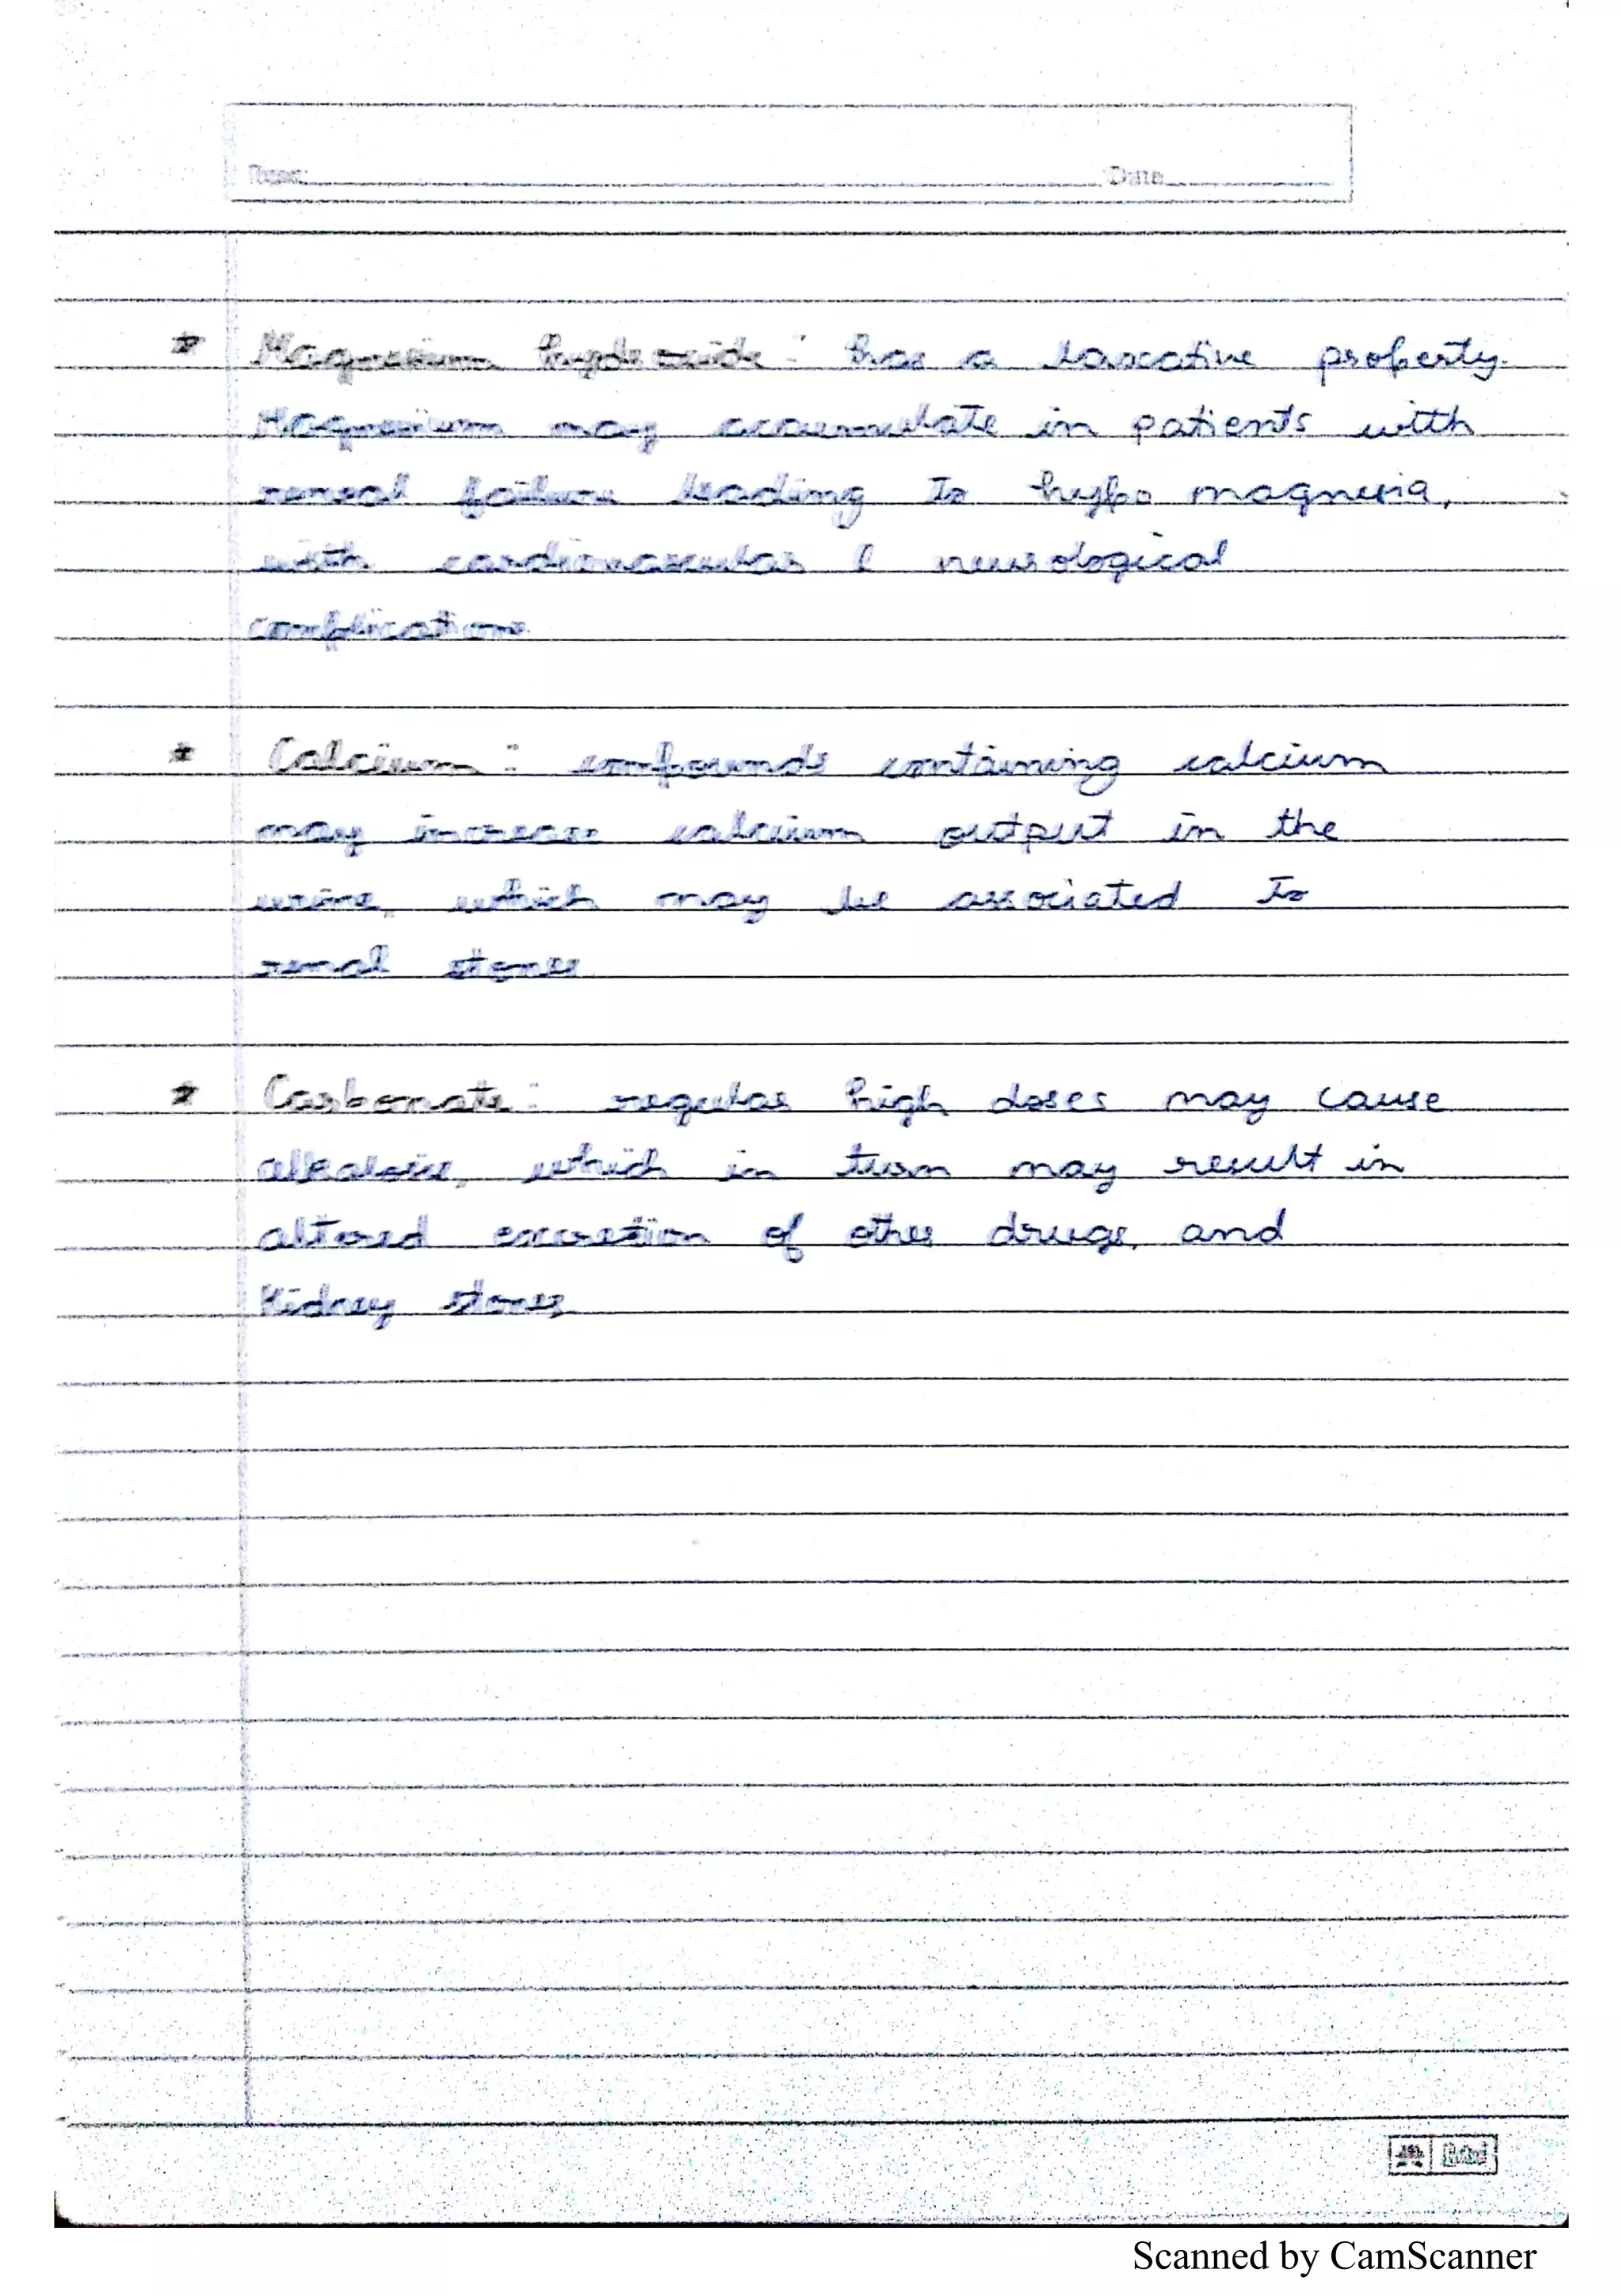 Date
* Magnesium hydroxide : has a laxcative property.
Magnesium may accumulate in patients with
renal failure leading to hypo magnesia,
with cardiovascular & neurological
complications
* Calcium : compounds containing calcium
may increase calcium output in the
urine, which may be associated to
renal stones
* Carbonate : regular high doses may cause
alkalosis, which in turn may result in
altered excretion of other drugs, and
Kidney stones
Scanned by CamScanner